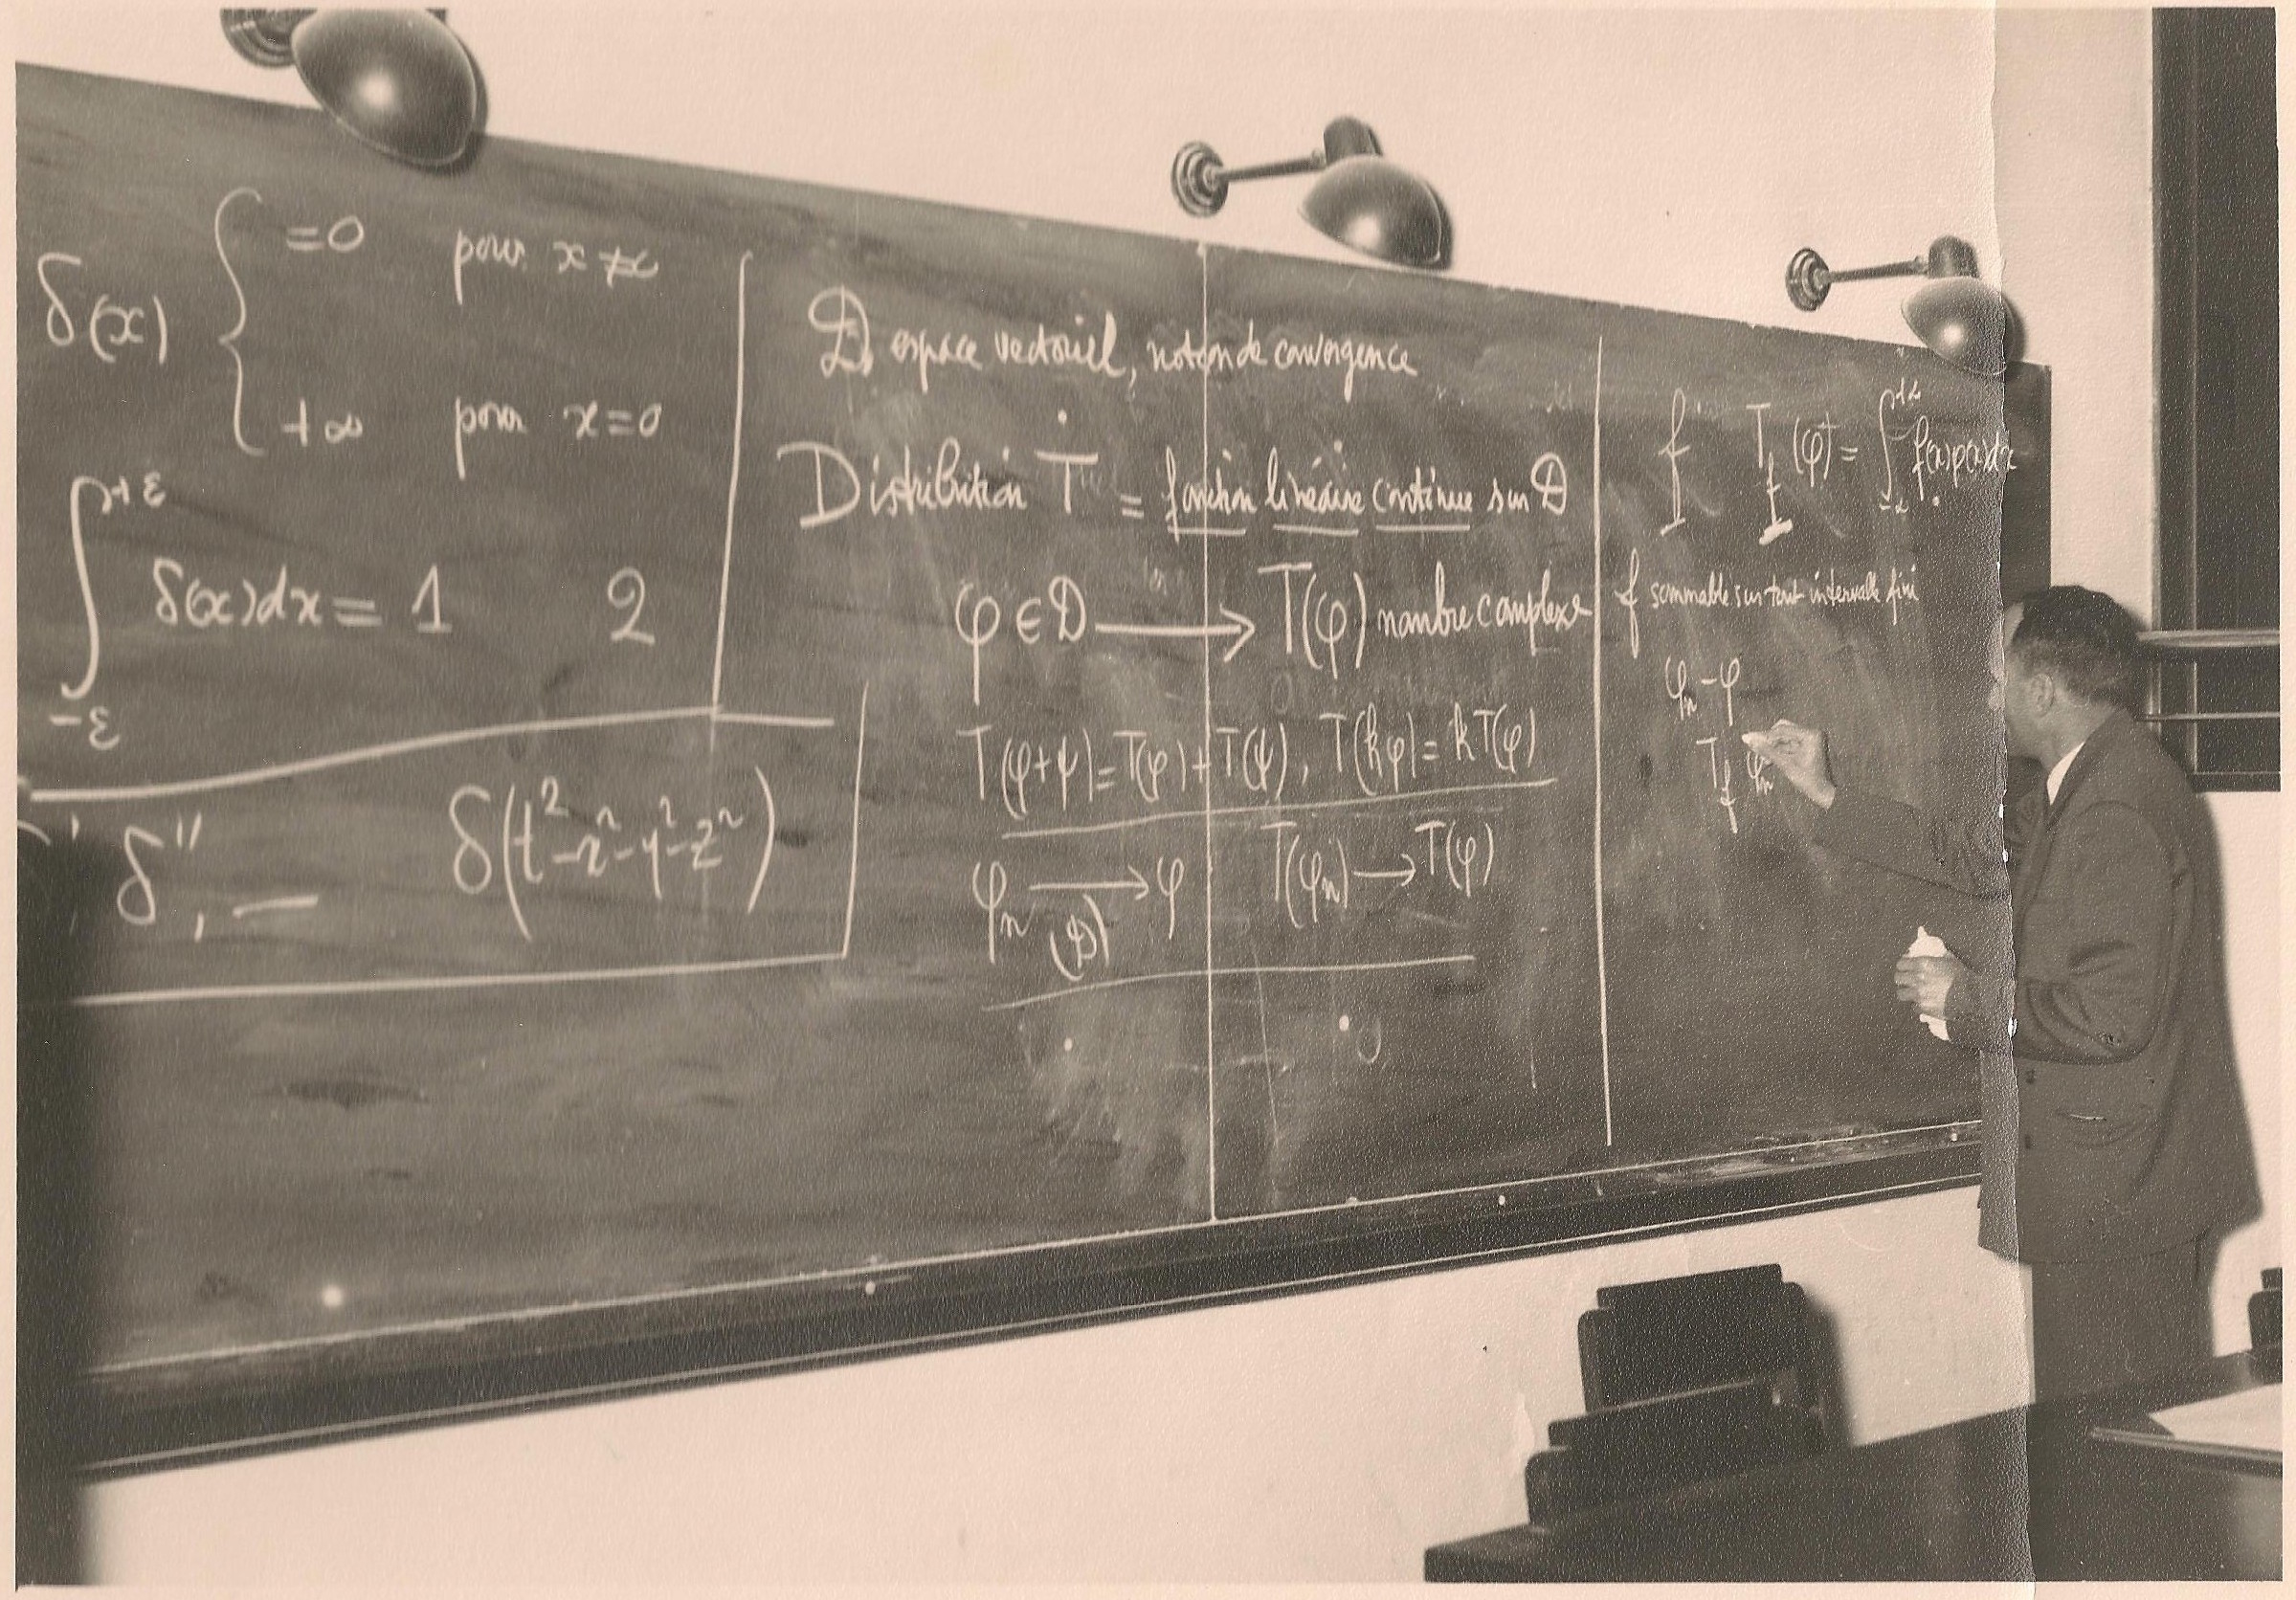 δ(x) { =0 pour x ≠
+∞ pour x=0
∫_{-ε}^{+ε} δ(x)dx = 1 2
δ'', — δ(t²-x²-y²-z²)
𝒟 espace vectoriel, notion de convergence
Distribution T = fonction linéaire continue sur 𝒟
φ ∈ 𝒟 ⟶ T(φ) nombre complexe
T(φ+ψ)=T(φ)+T(ψ), T(kφ)=kT(φ)
φₙ ⟶ φ T(φₙ) ⟶ T(φ)
(𝒟)
f T_f(φ) = ∫_{-∞}^{+∞} f(x)φ(x)dx
f sommable sur tout intervalle fini
φₙ - φ
T_f φₙ